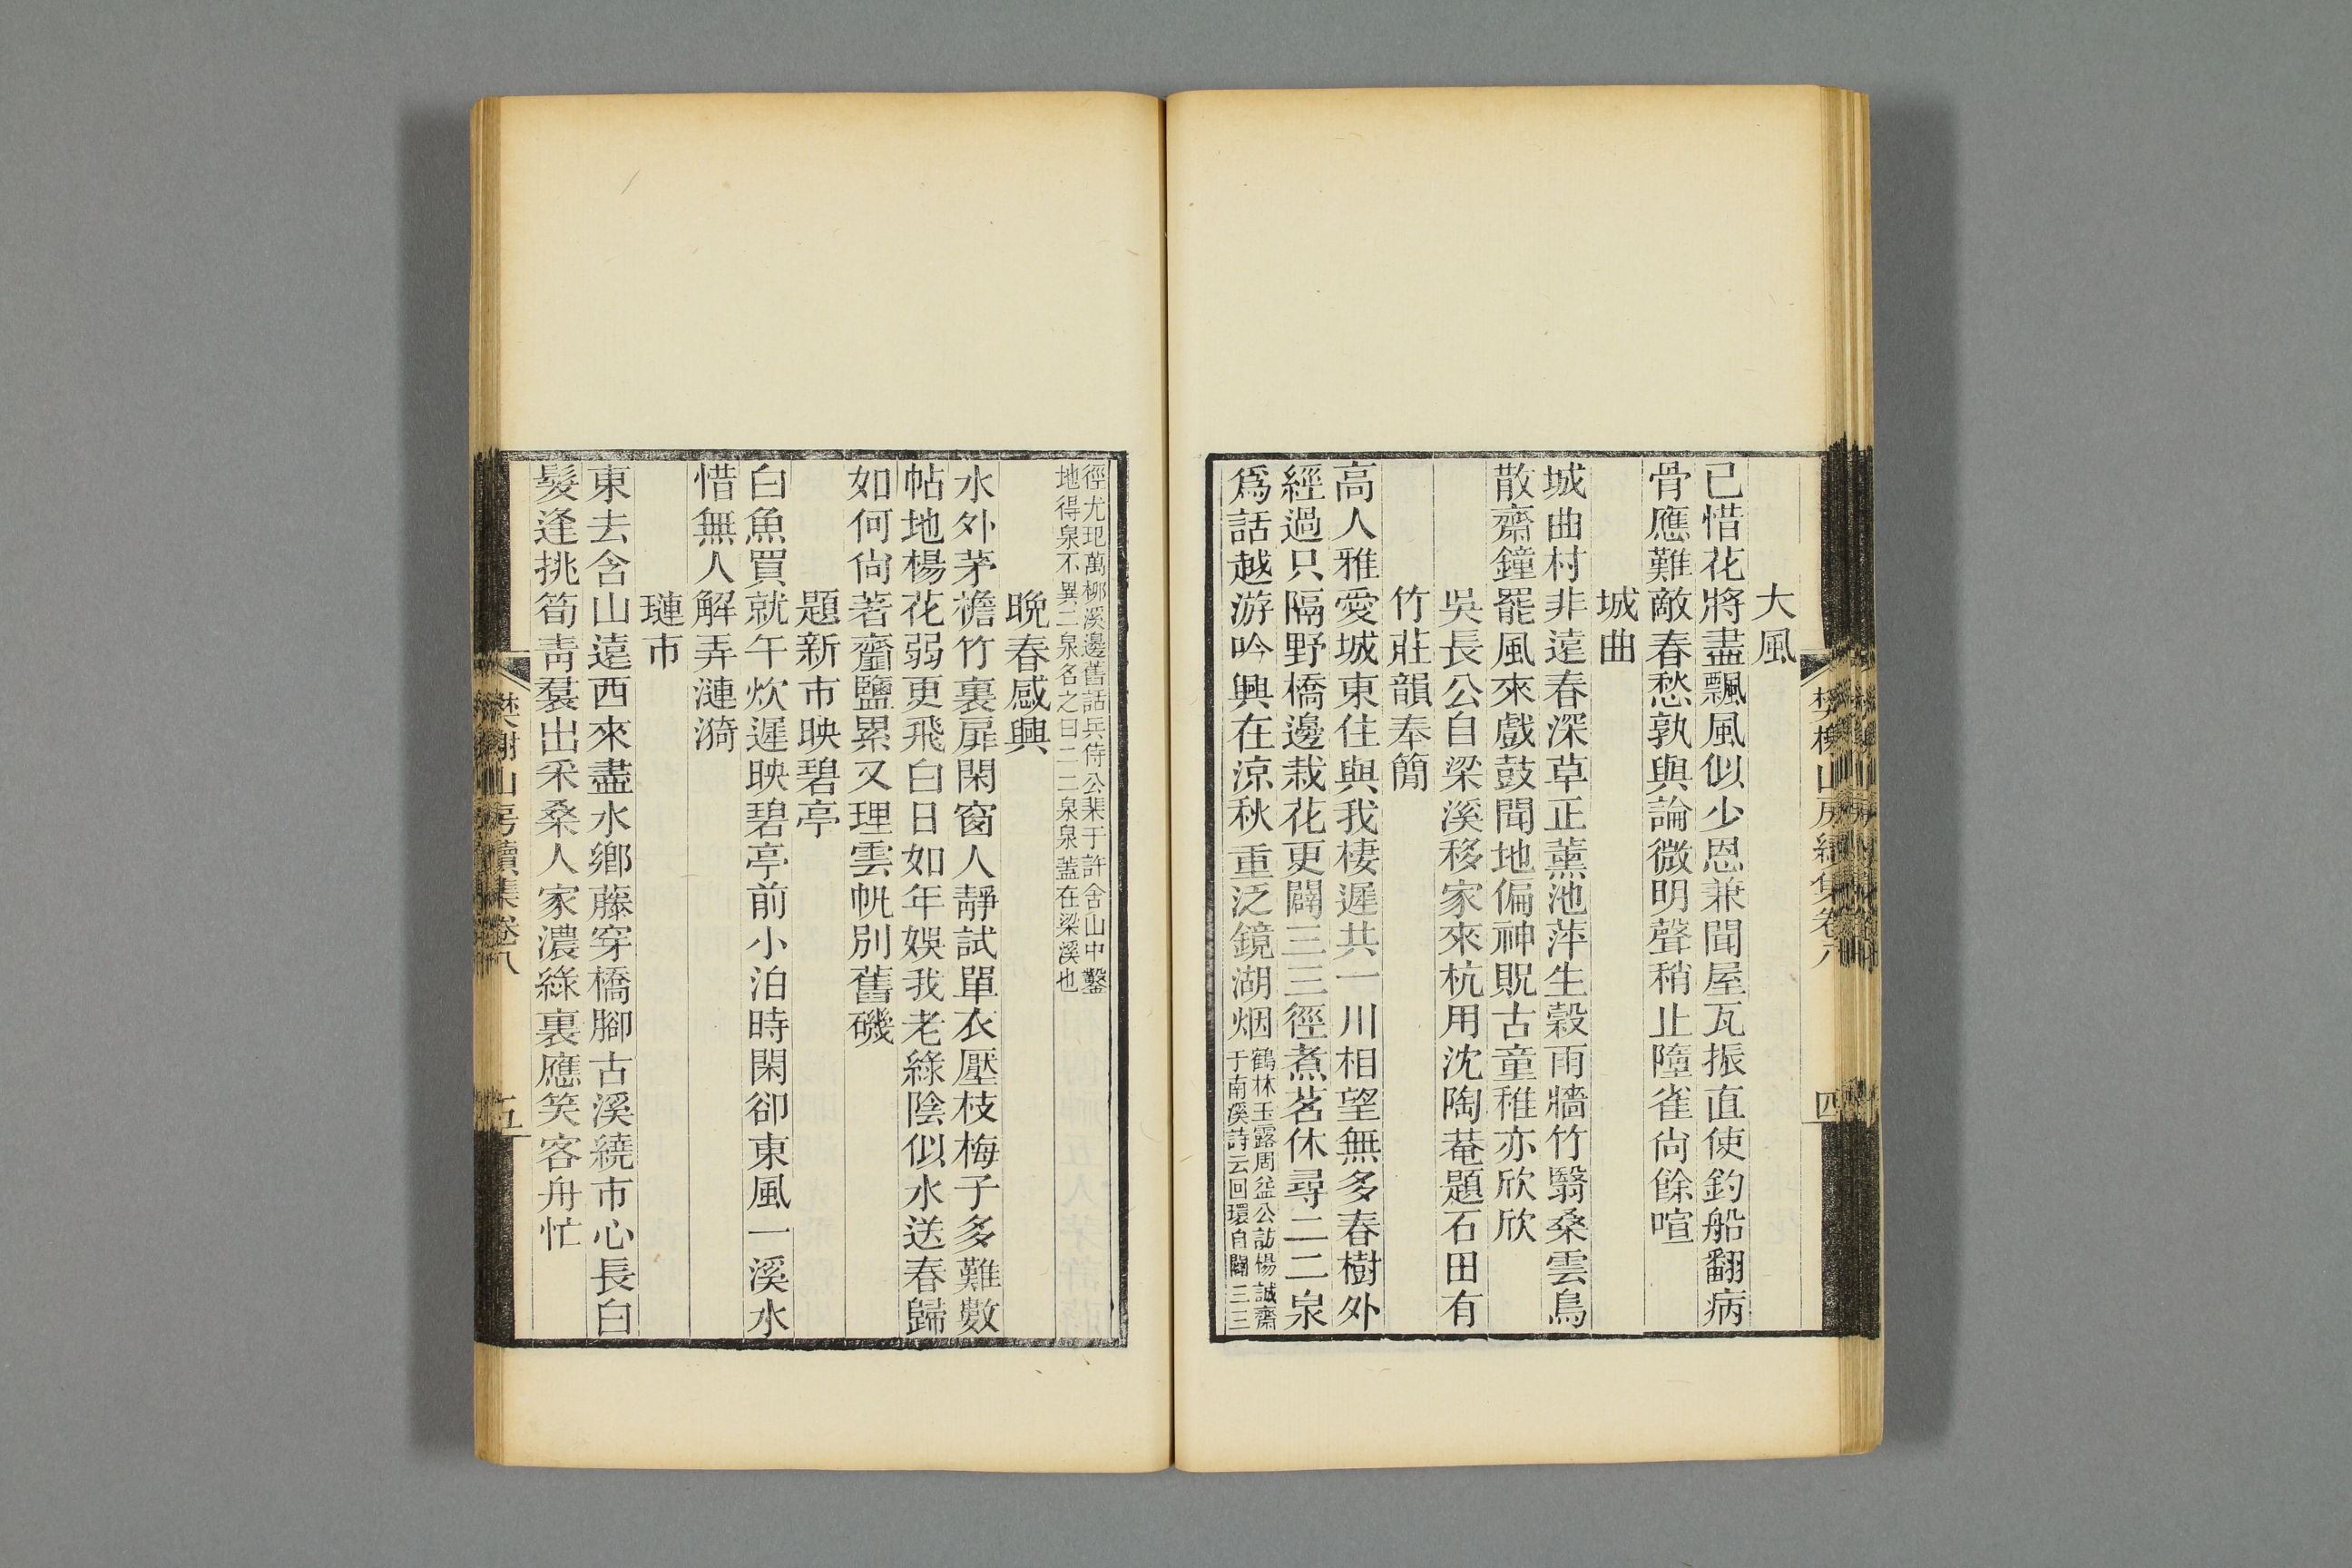 大風
已惜花將盡飄風似少恩兼聞屋瓦振直使釣船翻病
骨應難敵春愁孰與論微明聲稍止隨雀尙餘喧
城曲
城曲村非遠春深草正薰池萍生穀雨牆竹翳桑雲鳥
散齋鐘罷風來戲鼓聞地偏神貺古童稚亦欣欣
吳長公自梁溪移家來杭用沈陶菴題石田有
竹莊韻奉簡
高人雅愛城東住與我棲遲共一川相望無多春樹外
經過只隔野橋邊栽花更闢三三徑煮茗休尋二二泉
爲話越游吟興在涼秋重泛鏡湖烟
鶴林玉露周益公訪楊誠齋
于南溪詩云回環自闢三三
樊榭山房續集卷八
四
徑尤玘萬柳溪邊舊話兵侍公棐于許舍山中鑿
地得泉不異二泉名之曰二二泉泉蓋在梁溪也
晚春感興
水外茅檐竹裏扉閑窗人靜試單衣壓枝梅子多難數
帖地楊花弱更飛白日如年娛我老綠陰似水送春歸
如何尙著齏鹽累又理雲帆別舊磯
題新市映碧亭
白魚買就午炊遲映碧亭前小泊時閑卻東風一溪水
惜無人解弄漣漪
璉市
東去含山遠西來盡水鄉藤穿橋腳古溪繞市心長白
髮逢挑筍靑裠出釆桑人家濃綠裏應笑客舟忙
樊榭山房續集卷八
五